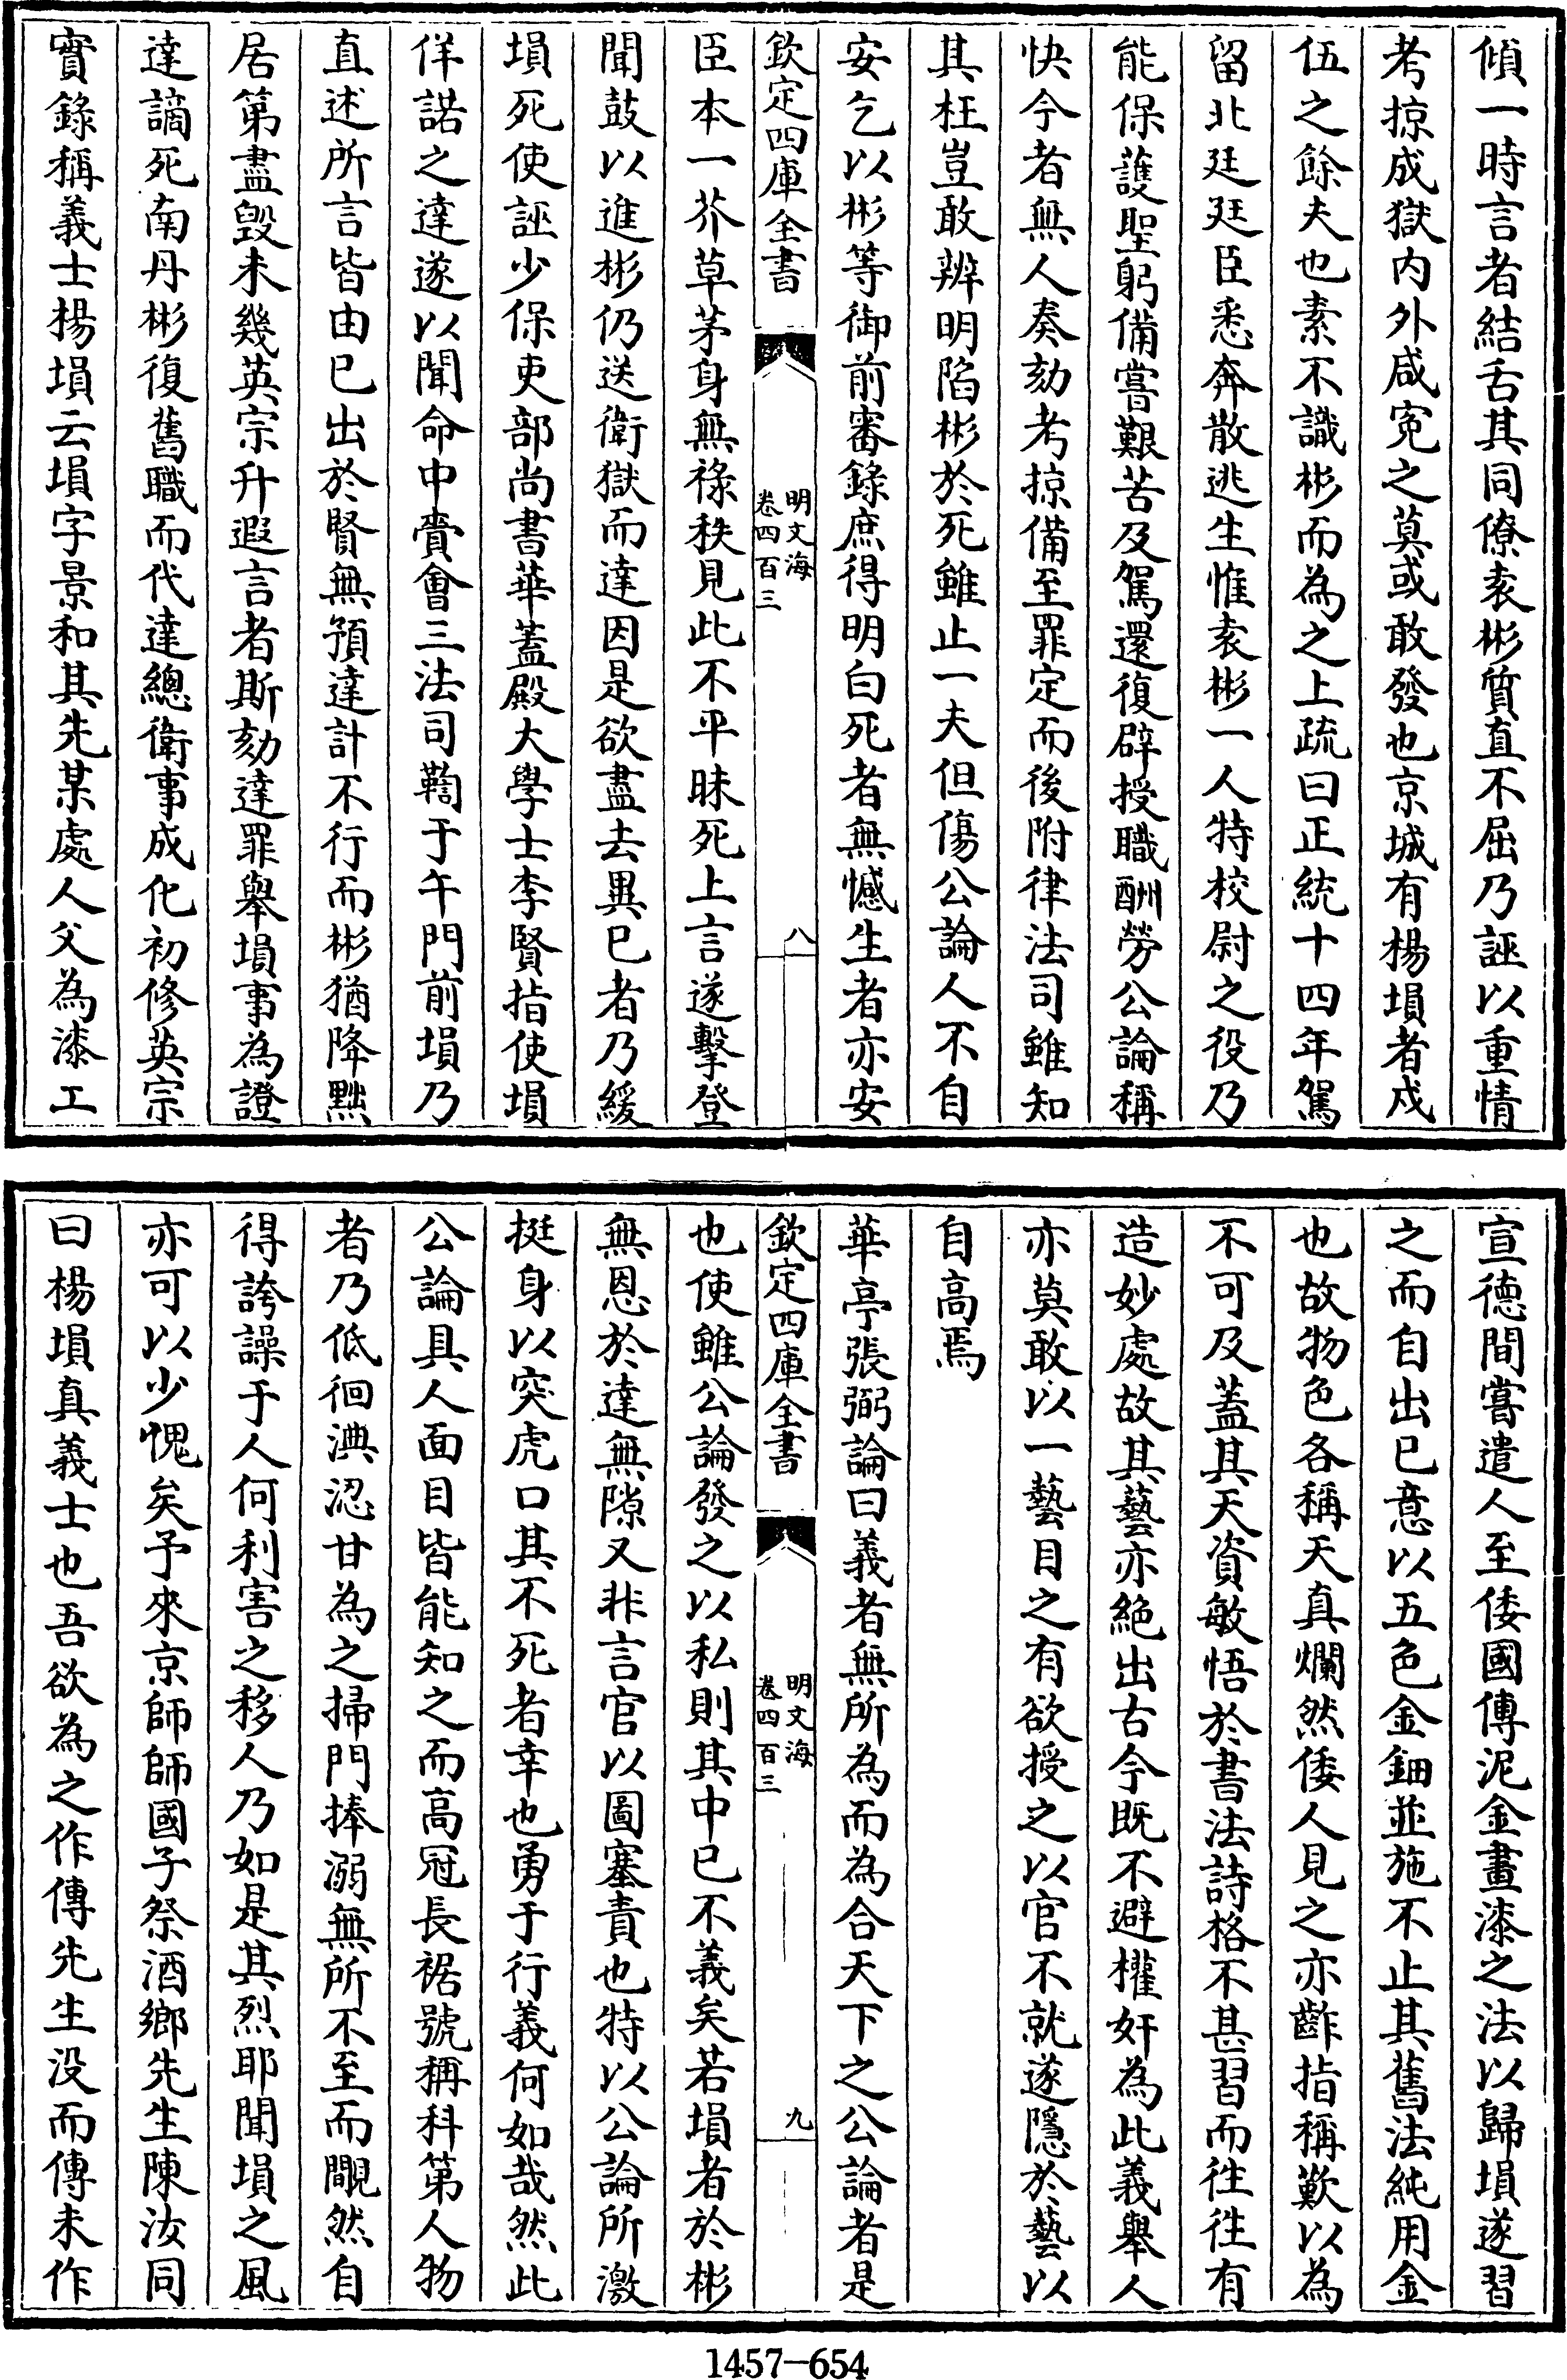 傾一時言者結舌其同僚袁彬質直不屈乃誣以重情
考掠成獄内外咸寃之莫或敢發也京城有楊塤者戍
伍之餘夫也素不識彬而為之上疏曰正統十四年駕
留北廷廷臣悉奔散逃生惟袁彬一人特校尉之役乃
能保護聖躬備嘗艱苦及駕還復辟授職酬勞公論稱
快今者無人奏劾考掠備至罪定而後附律法司雖知
其枉豈敢辨明陷彬於死雖止一夫但傷公論人不自
安乞以彬等御前審錄庶得明白死者無憾生者亦安
欽定四庫全書
明文海
卷四百三
八
臣本一芥草茅身無祿秩見此不平昧死上言遂擊登
聞鼓以進彬仍送衛獄而達因是欲盡去異已者乃緩
塤死使誣少保吏部尚書華蓋殿大學士李賢指使塤
佯諾之達遂以聞命中賫會三法司鞫于午門前塤乃
直述所言皆由已出於賢無預達計不行而彬猶降黜
居第盡毀未幾英宗升遐言者斯劾達罪舉塤事為證
達謫死南丹彬復舊職而代達總衛事成化初修英宗
實錄稱義士楊塤云塤字景和其先某處人父為漆工
宣德間嘗遣人至倭國傳泥金畫漆之法以歸塤遂習
之而自出已意以五色金鈿並施不止其舊法純用金
也故物色各稱天真爛然倭人見之亦齰指稱歎以為
不可及蓋其天資敏悟於書法詩格不甚習而徃徃有
造妙處故其藝亦絶出古今既不避權奸為此義舉人
亦莫敢以一藝目之有欲授之以官不就遂隱於藝以
自高焉
華亭張弼論曰義者無所為而為合天下之公論者是
欽定四庫全書
明文海
卷四百三
九
也使雖公論發之以私則其中已不義矣若塤者於彬
無恩於達無隙又非言官以圖塞責也特以公論所激
挺身以突虎口其不死者幸也勇于行義何如哉然此
公論具人面目皆能知之而高冠長裾號稱科第人物
者乃低徊淟涊甘為之掃門捧溺無所不至而覵然自
得誇譟于人何利害之移人乃如是其烈耶聞塤之風
亦可以少愧矣予來京師師國子祭酒鄉先生陳汝同
曰楊塤真義士也吾欲為之作傳先生没而傳未作
1457-654